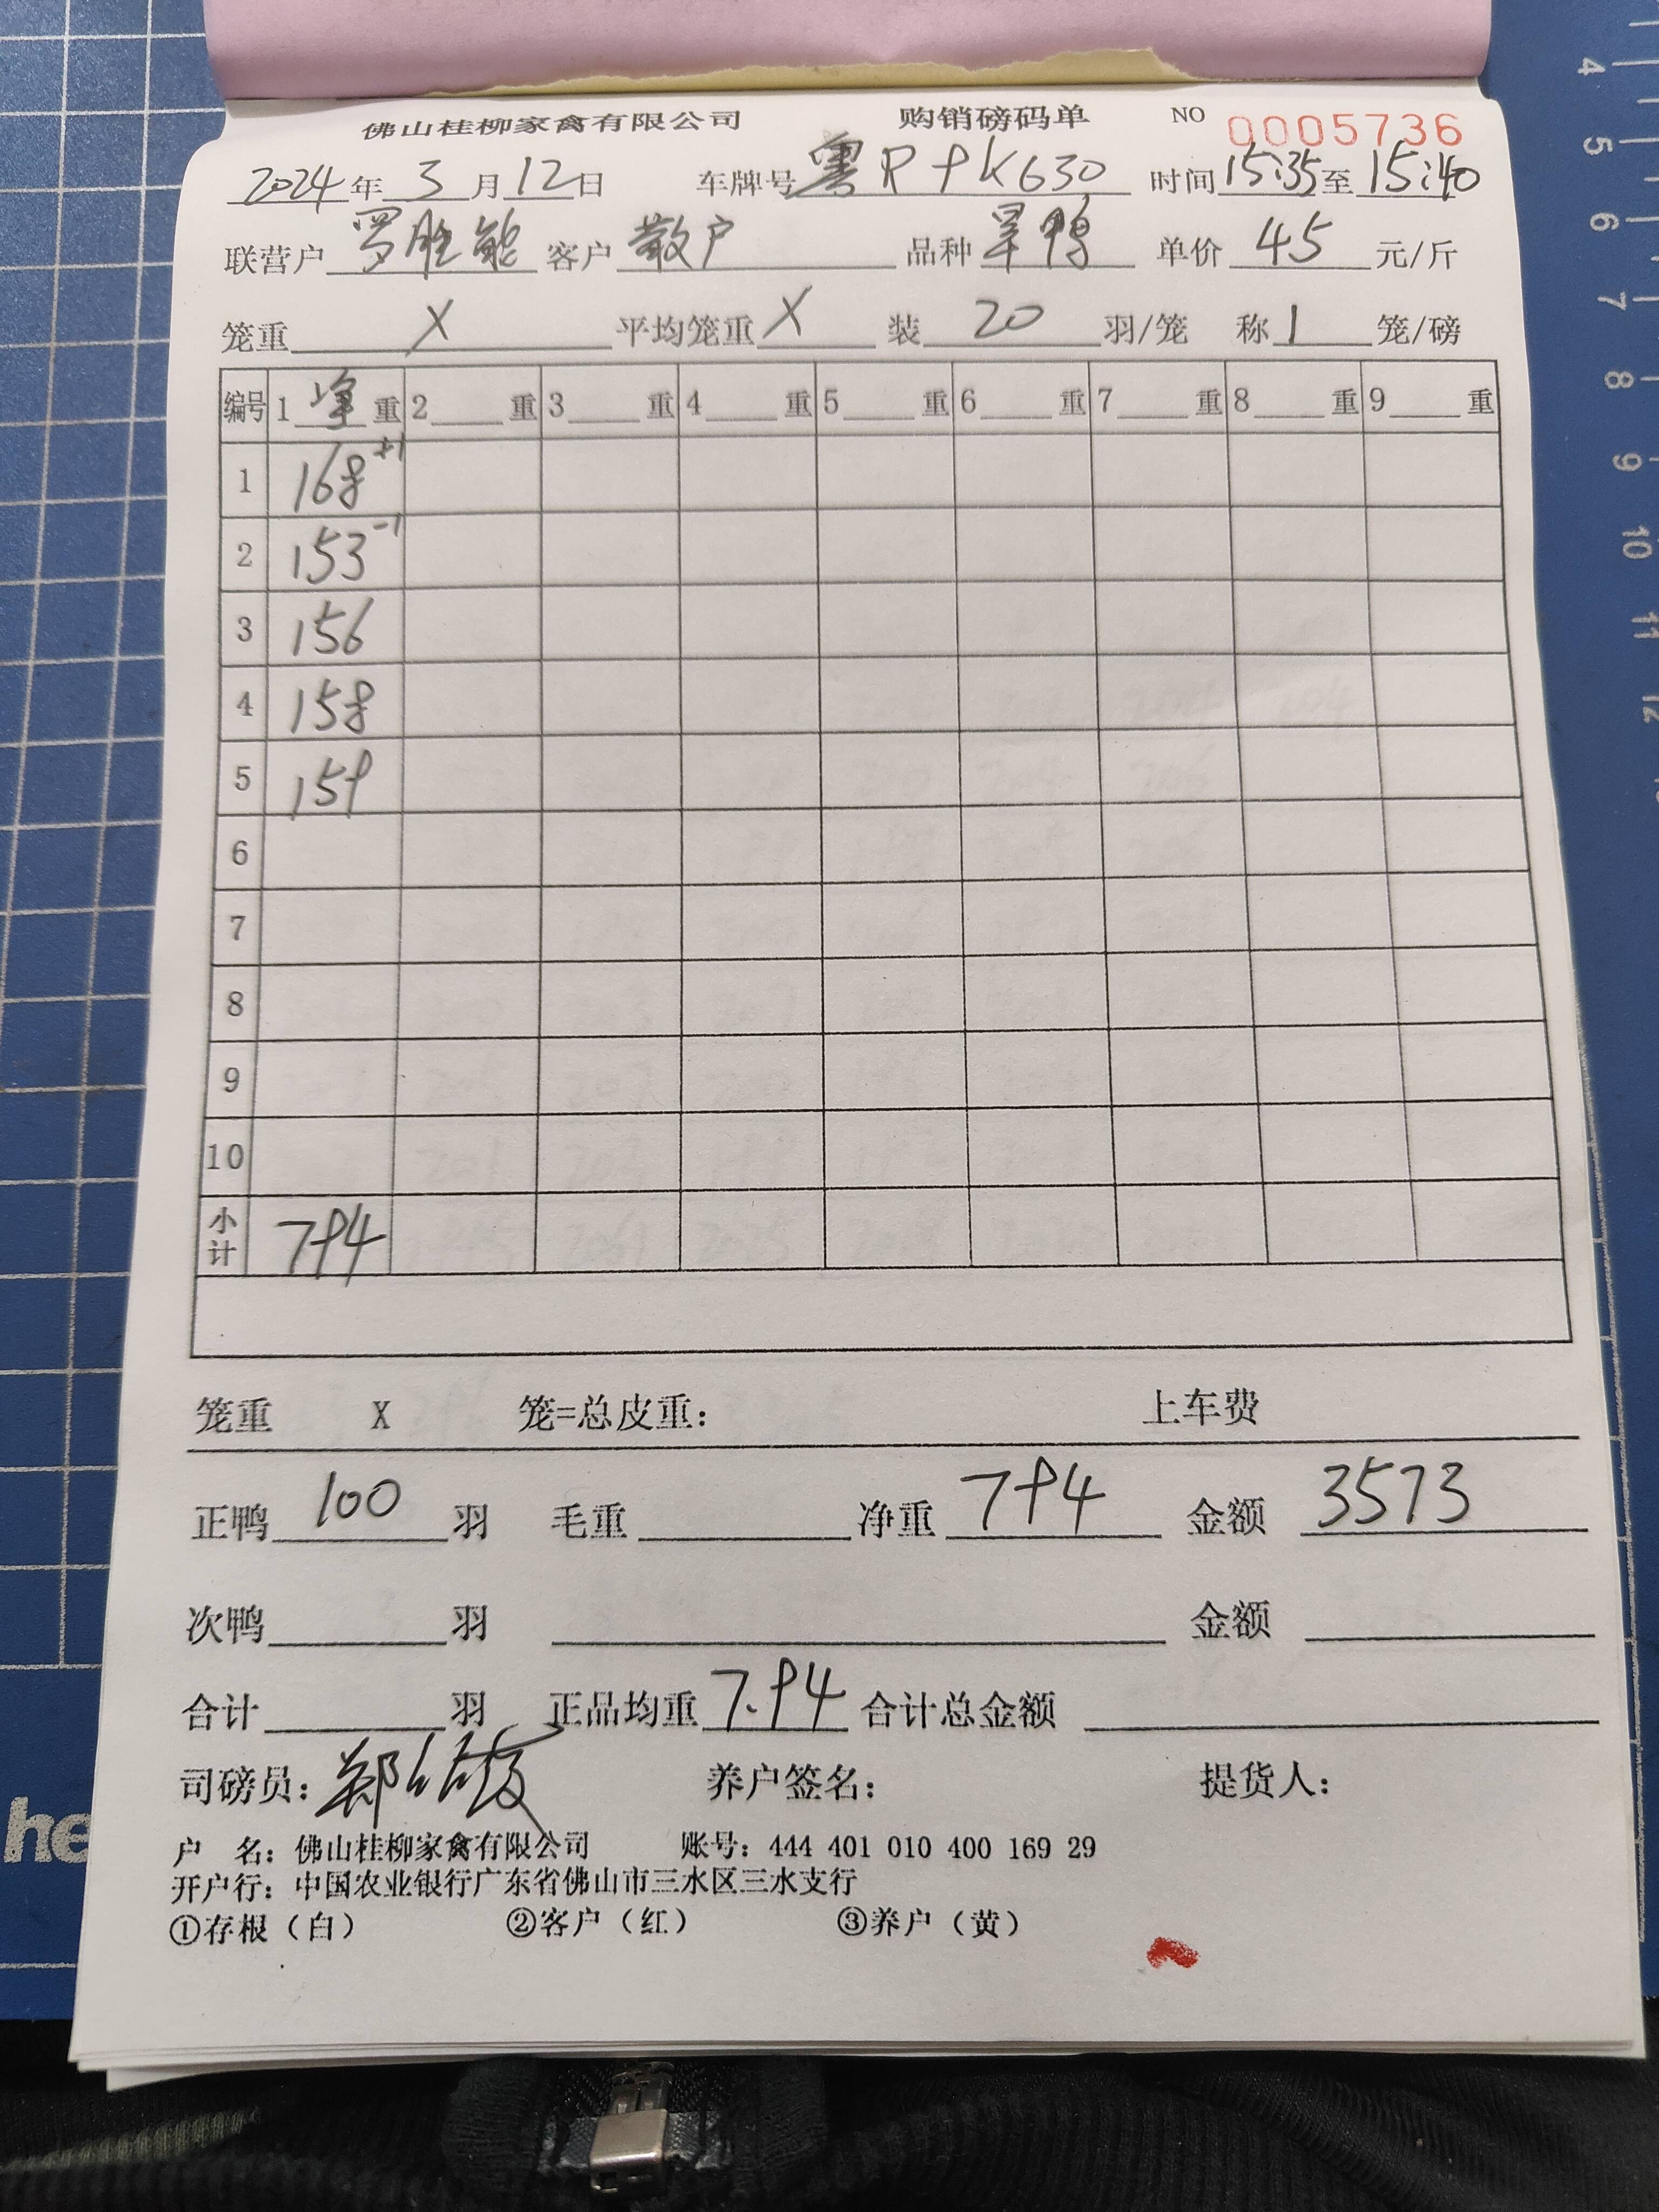 佛山桂柳家禽有限公司 购销磅码单 NO 0005736
2024年3月12日 车牌号粤R9K630 时间15:35至15:40
联营户罗胜能 客户散户 品种旱鸭 单价45元/斤
笼重X 平均笼重X 装20羽/笼 称1笼/磅
编号 1净重 2重 3重 4重 5重 6重 7重 8重 9重
1 168 +1
2 153 -1
3 156
4 158
5 159
6
7
8
9
10
小计 794
笼重 X 笼=总皮重: 上车费
正鸭100羽 毛重 净重794 金额3573
次鸭 羽 金额
合计 羽 正品均重7.94 合计总金额
司磅员:郑 养户签名: 提货人:
户 名: 佛山桂柳家禽有限公司 账号: 444 401 010 400 169 29
开户行: 中国农业银行广东省佛山市三水区三水支行
①存根（白） ②客户（红） ③养户（黄）
he
4
5
6
7
8
9
10
11
12